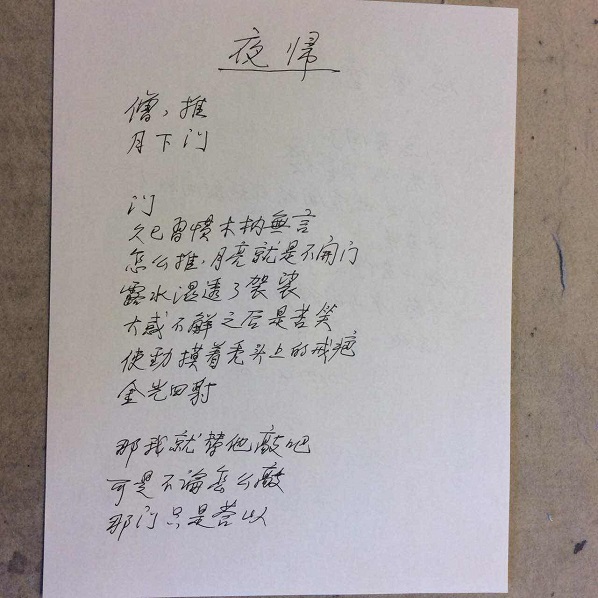 夜归
僧，推
月下门
门
久已习惯木枘無言
怎么推，月亮就是不开门
露水湿透了袈裟
大惑不解之后是苦笑
使劲摸着秃头上的戒疤
金光四射
那我就替他敲吧
可是不论怎么敲
那门只是营以